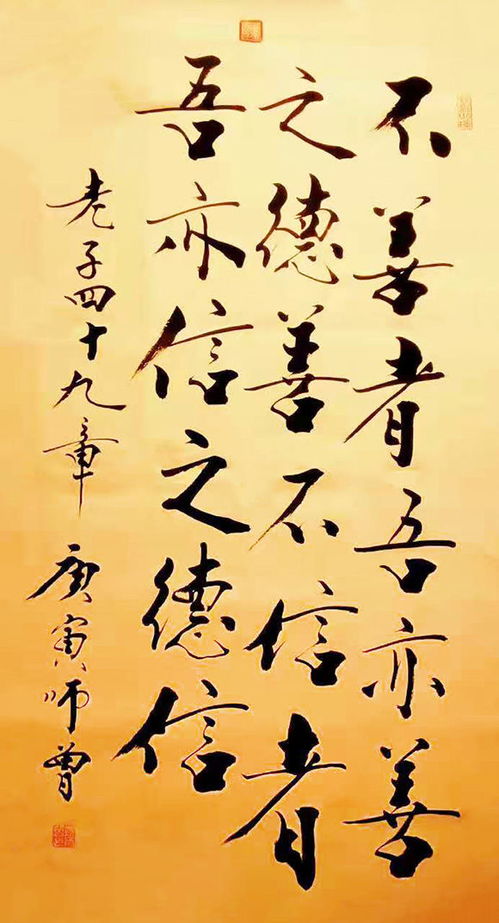 不善者吾亦善
之德善不信者
吾亦信之德信
老子四十九章 庚寅师曾